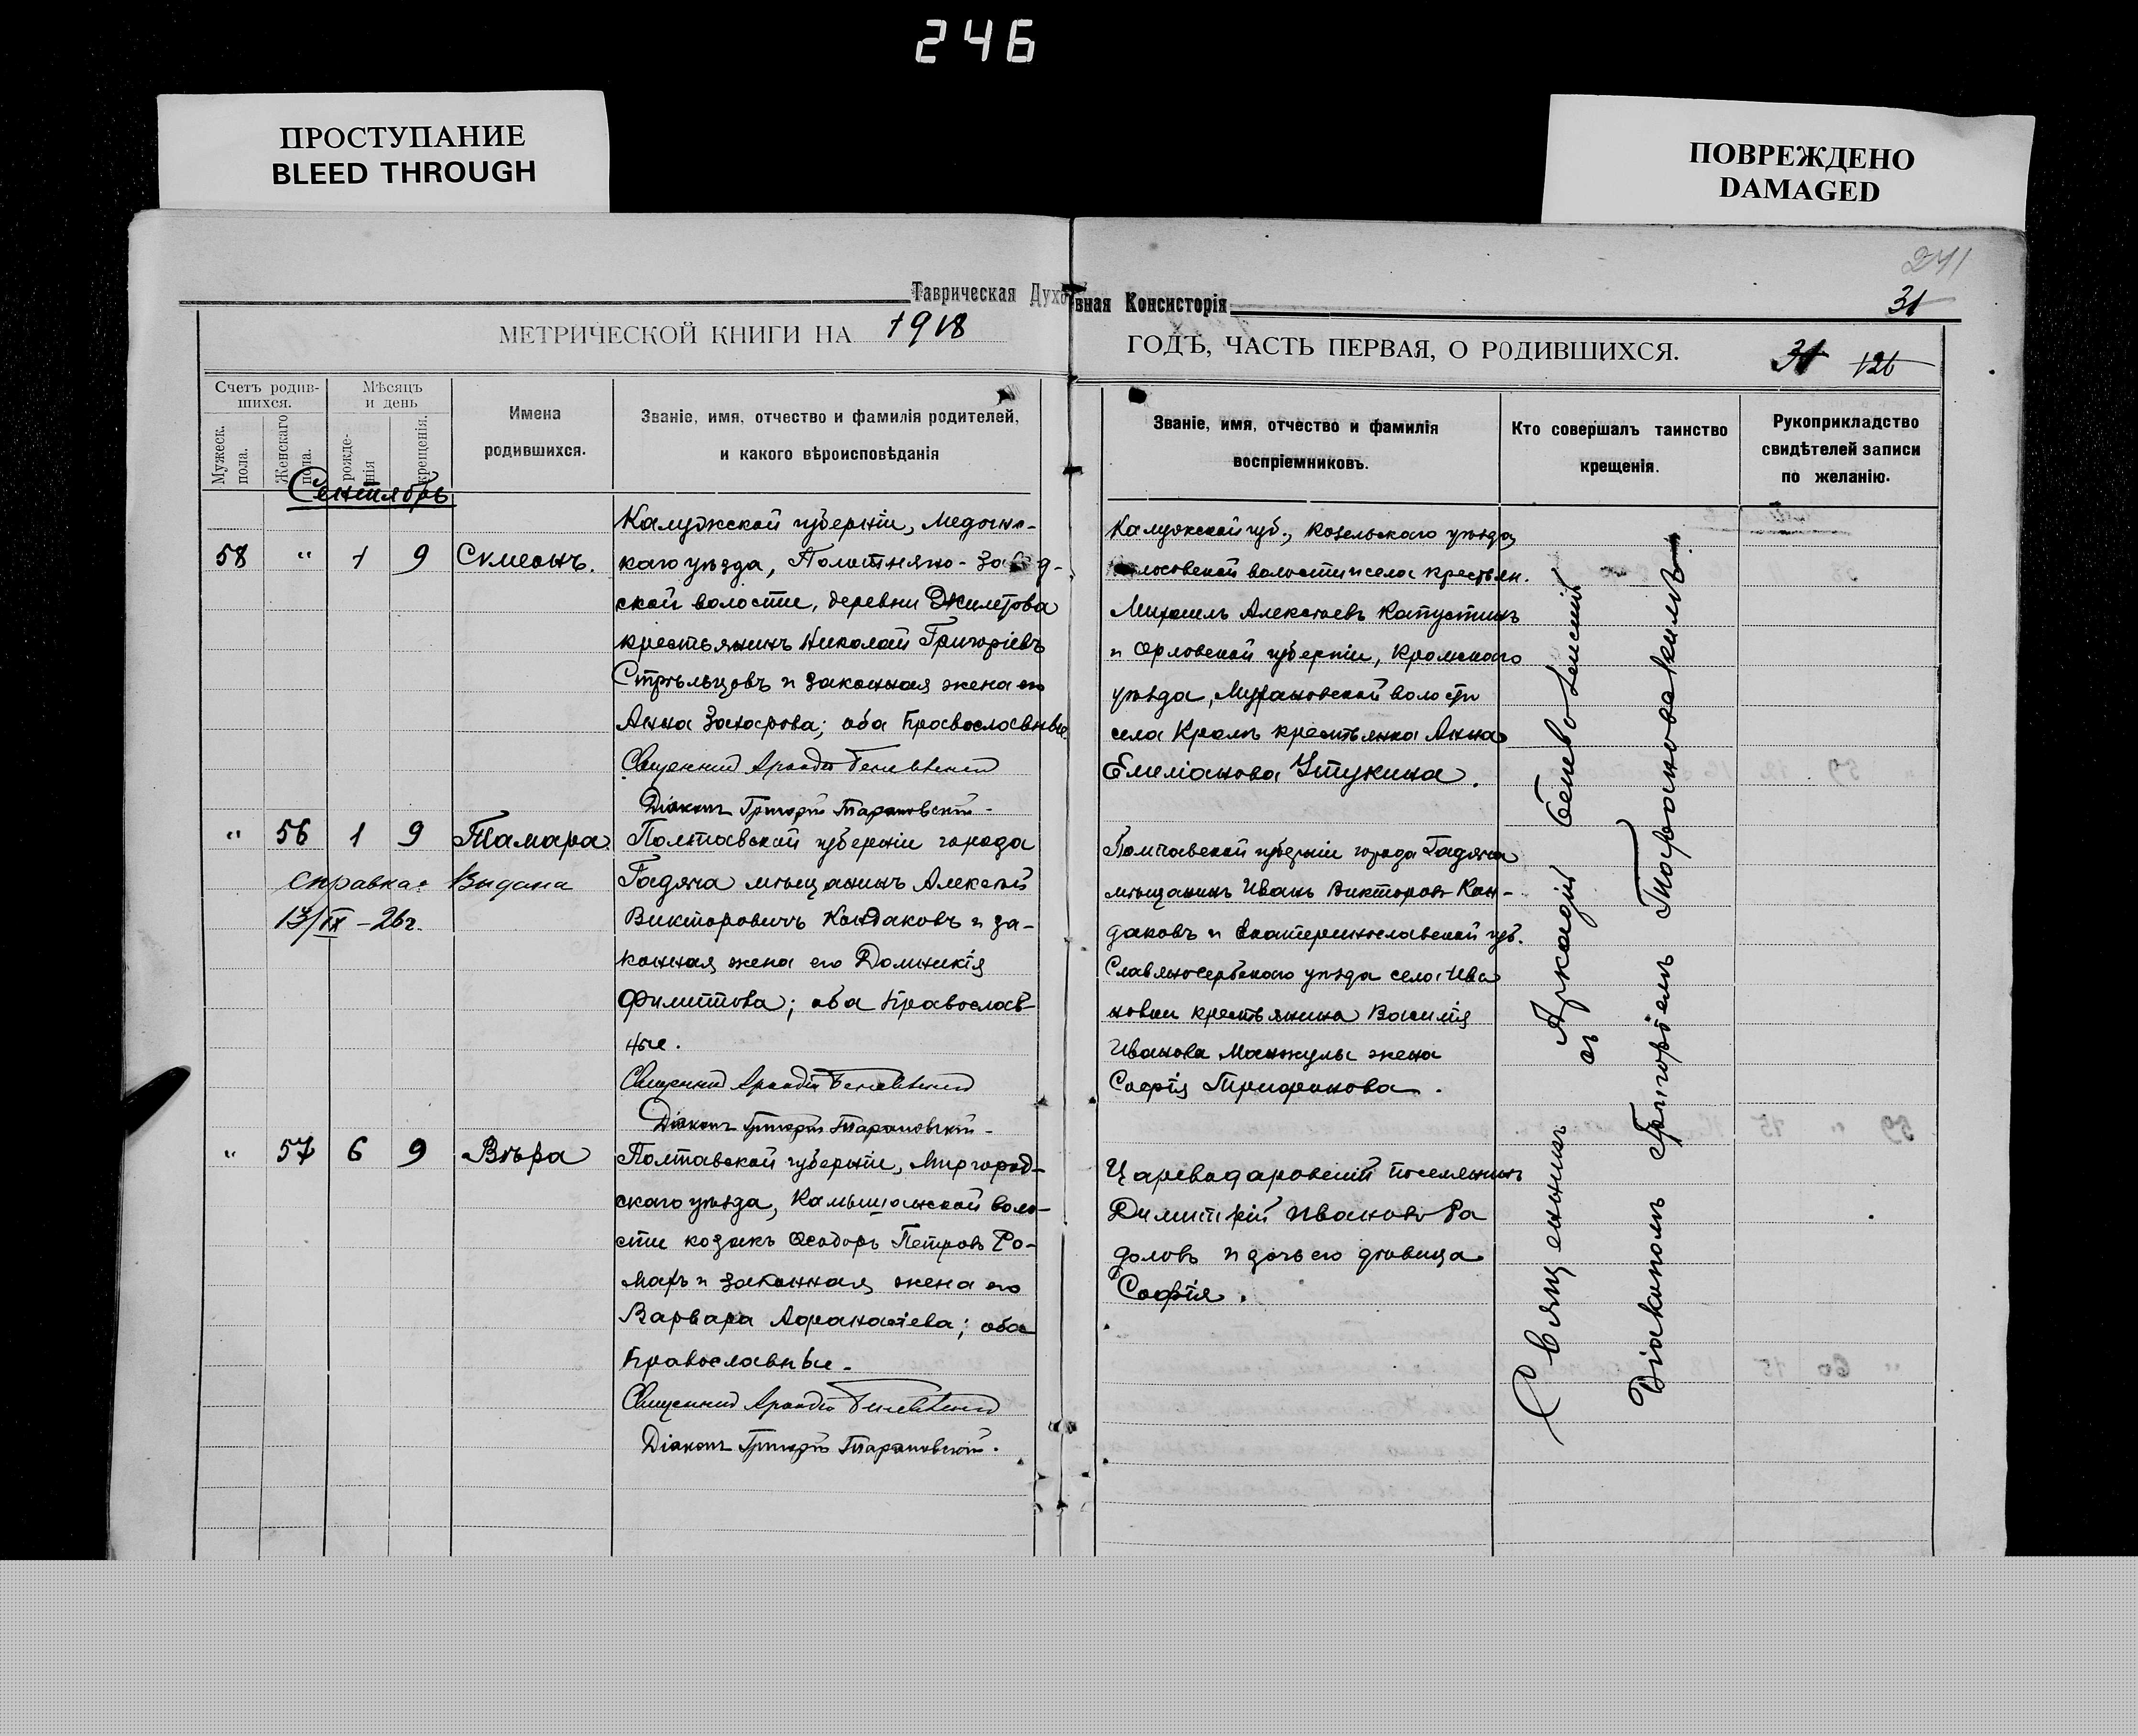 246
ПРОСТУПАНИЕ
BLEED THROUGH
ПОВРЕЖДЕНО
DAMAGED
241
31
Таврическая Духовная Консисторія
МЕТРИЧЕСКОЙ КНИГИ НА 1918
ГОДЪ, ЧАСТЬ ПЕРВАЯ, О РОДИВШИХСЯ.
31 121
Счетъ родив-
шихся.
Мужеск.
пола.
Женскаго
пола.
Мѣсяцъ
и день
рожде-
нія
крещенія.
Имена
родившихся.
Званіе, имя, отчество и фамилія родителей,
и какого вѣроисповѣданія
Званіе, имя, отчество и фамилія
воспріемниковъ.
Кто совершалъ таинство
крещенія.
Рукоприкладство
свидѣтелей записи
по желанію.
Сентябрь
58 " 1 9 Симеонъ.
Калужской губерніи, Медынс-
каго уѣзда, Полотняно-Завод-
ской волости, деревни Джилетова
крестьянинъ Николай Григоріевъ
Стрѣльцовъ и законная жена его
Анна Захарова; оба Православные.
Священник Аркадій
Діаконъ Григорій Тарановскій.
Калужской губ., Козельскаго уѣзда,
волости и села крестьян.
Михаилъ Алексѣевъ Капустинъ
и Орловской губерніи, Кромскаго
уѣзда, волости
села Кромъ крестьянка Анна
Емиліанова Устукина.
" 56 1 9 Тамара.
справка: Выдана
13/IX-26г.
Полтавской губерніи города
Гадяча мѣщанинъ Алексѣй
Викторовичъ Кондаковъ и за-
конная жена его Домникія
Филиппова; оба Православ-
ные.
Священник Аркадій
Діаконъ Григорій Тарановскій.
Полтавской губерніи города Гадяча
мѣщанинъ Иванъ Викторовъ Кон-
даковъ и Екатеринославской губ.
Славяносербскаго уѣзда села Ива
новки крестьянина Василія
Иванова Манжулы жена
Софія Трифонова.
" 57 6 9 Вѣра
Полтавской губерніи, Миргород-
скаго уѣзда, Камышанской воло-
сти козакъ Ѳеодоръ Петровъ Ро-
маръ и законная жена его
Варвара Афанасіева; оба
Православные.
Священник Аркадій
Діаконъ Григорій Тарановскій.
Цареводаровскій поселянинъ
Димитрій Ивановъ Ра
доловъ и дочь его дѣвица
Софія.
Священникъ Аркадій
съ
Діакономъ Григоріемъ Тарановскимъ.